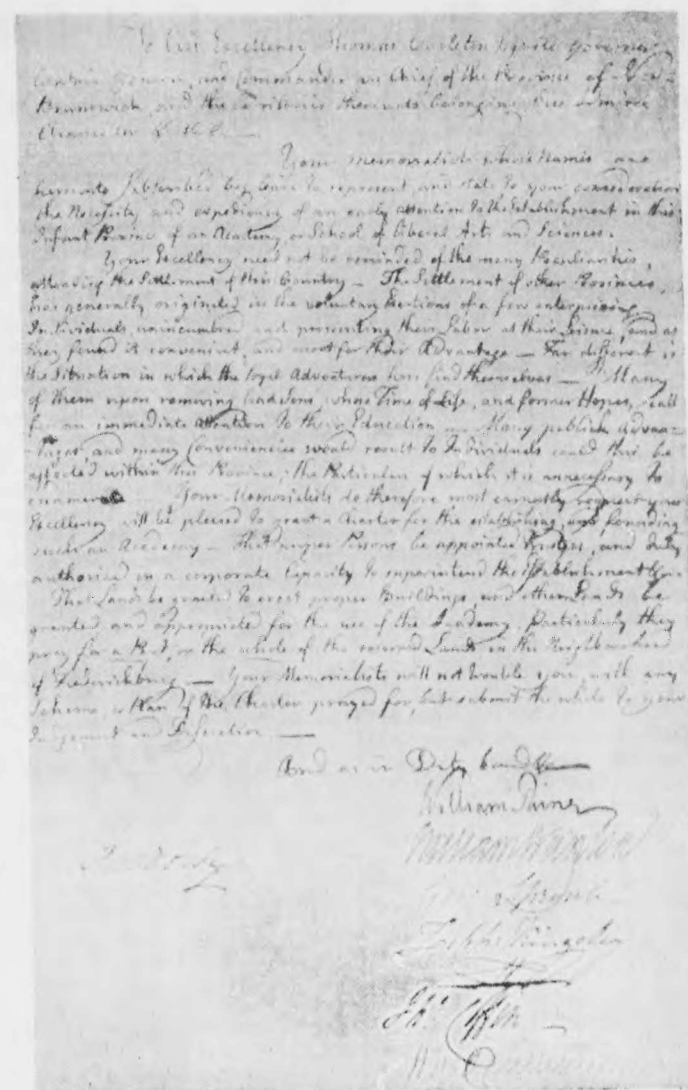 To His Excellency Thomas Carleton Esquire Governor
Captain General, and Commander in Chief of the Province of New
Brunswick, and the territories thereunto belonging,
Chancellor
Your Memorialists whose Names are
hereunto Subscribed beg leave to represent, and state to your consideration
the Necessity and expediency of an early attention to the Establishment in this
Infant Province of an Academy or School of liberal Arts and Sciences.
Your Excellency need not be reminded of the many Peculiarities,
attending the Settlement of this Country — The Settlement of other Provinces,
has generally originated in the voluntary Exertions of a few enterprising
Individuals, unincumbered and prosecuting their Labor at their Leisure, and as
they found it convenient, and most for their Advantage — Far different is
the Situation in which the loyal Adventurers here find themselves — Many
of them upon removing had Sons, whose Time of Life, and former Hopes, call
for an immediate attention to their Education — Many publick Advan-
tages, and many Conveniencies would result to Individuals could this be
affected within this Province, the Particulars of which it is unnecessary to
enumerate — Your Memorialists do therefore most earnestly request your
Excellency will be pleased to grant a Charter for the establishing, and founding
such an Academy — That proper Persons be appointed Trustees, and duly
authorised in a corporate Capacity to superintend the Establishment
That Lands be granted to erect proper Buildings, and other Lands be
granted and appropriated for the use of the Academy, Particularly they
pray for a Part, or the whole of the reserved Lands in the Neighbourhood
of Fredericksburg — Your Memorialists will not trouble you, with any
Scheme, or Plan of the Charter prayed for, but submit the whole to your
Judgement and Discretion —
And as in Duty bound &c
William Paine
William Wanton
Zeph: Kingsley
Jno. Coffin